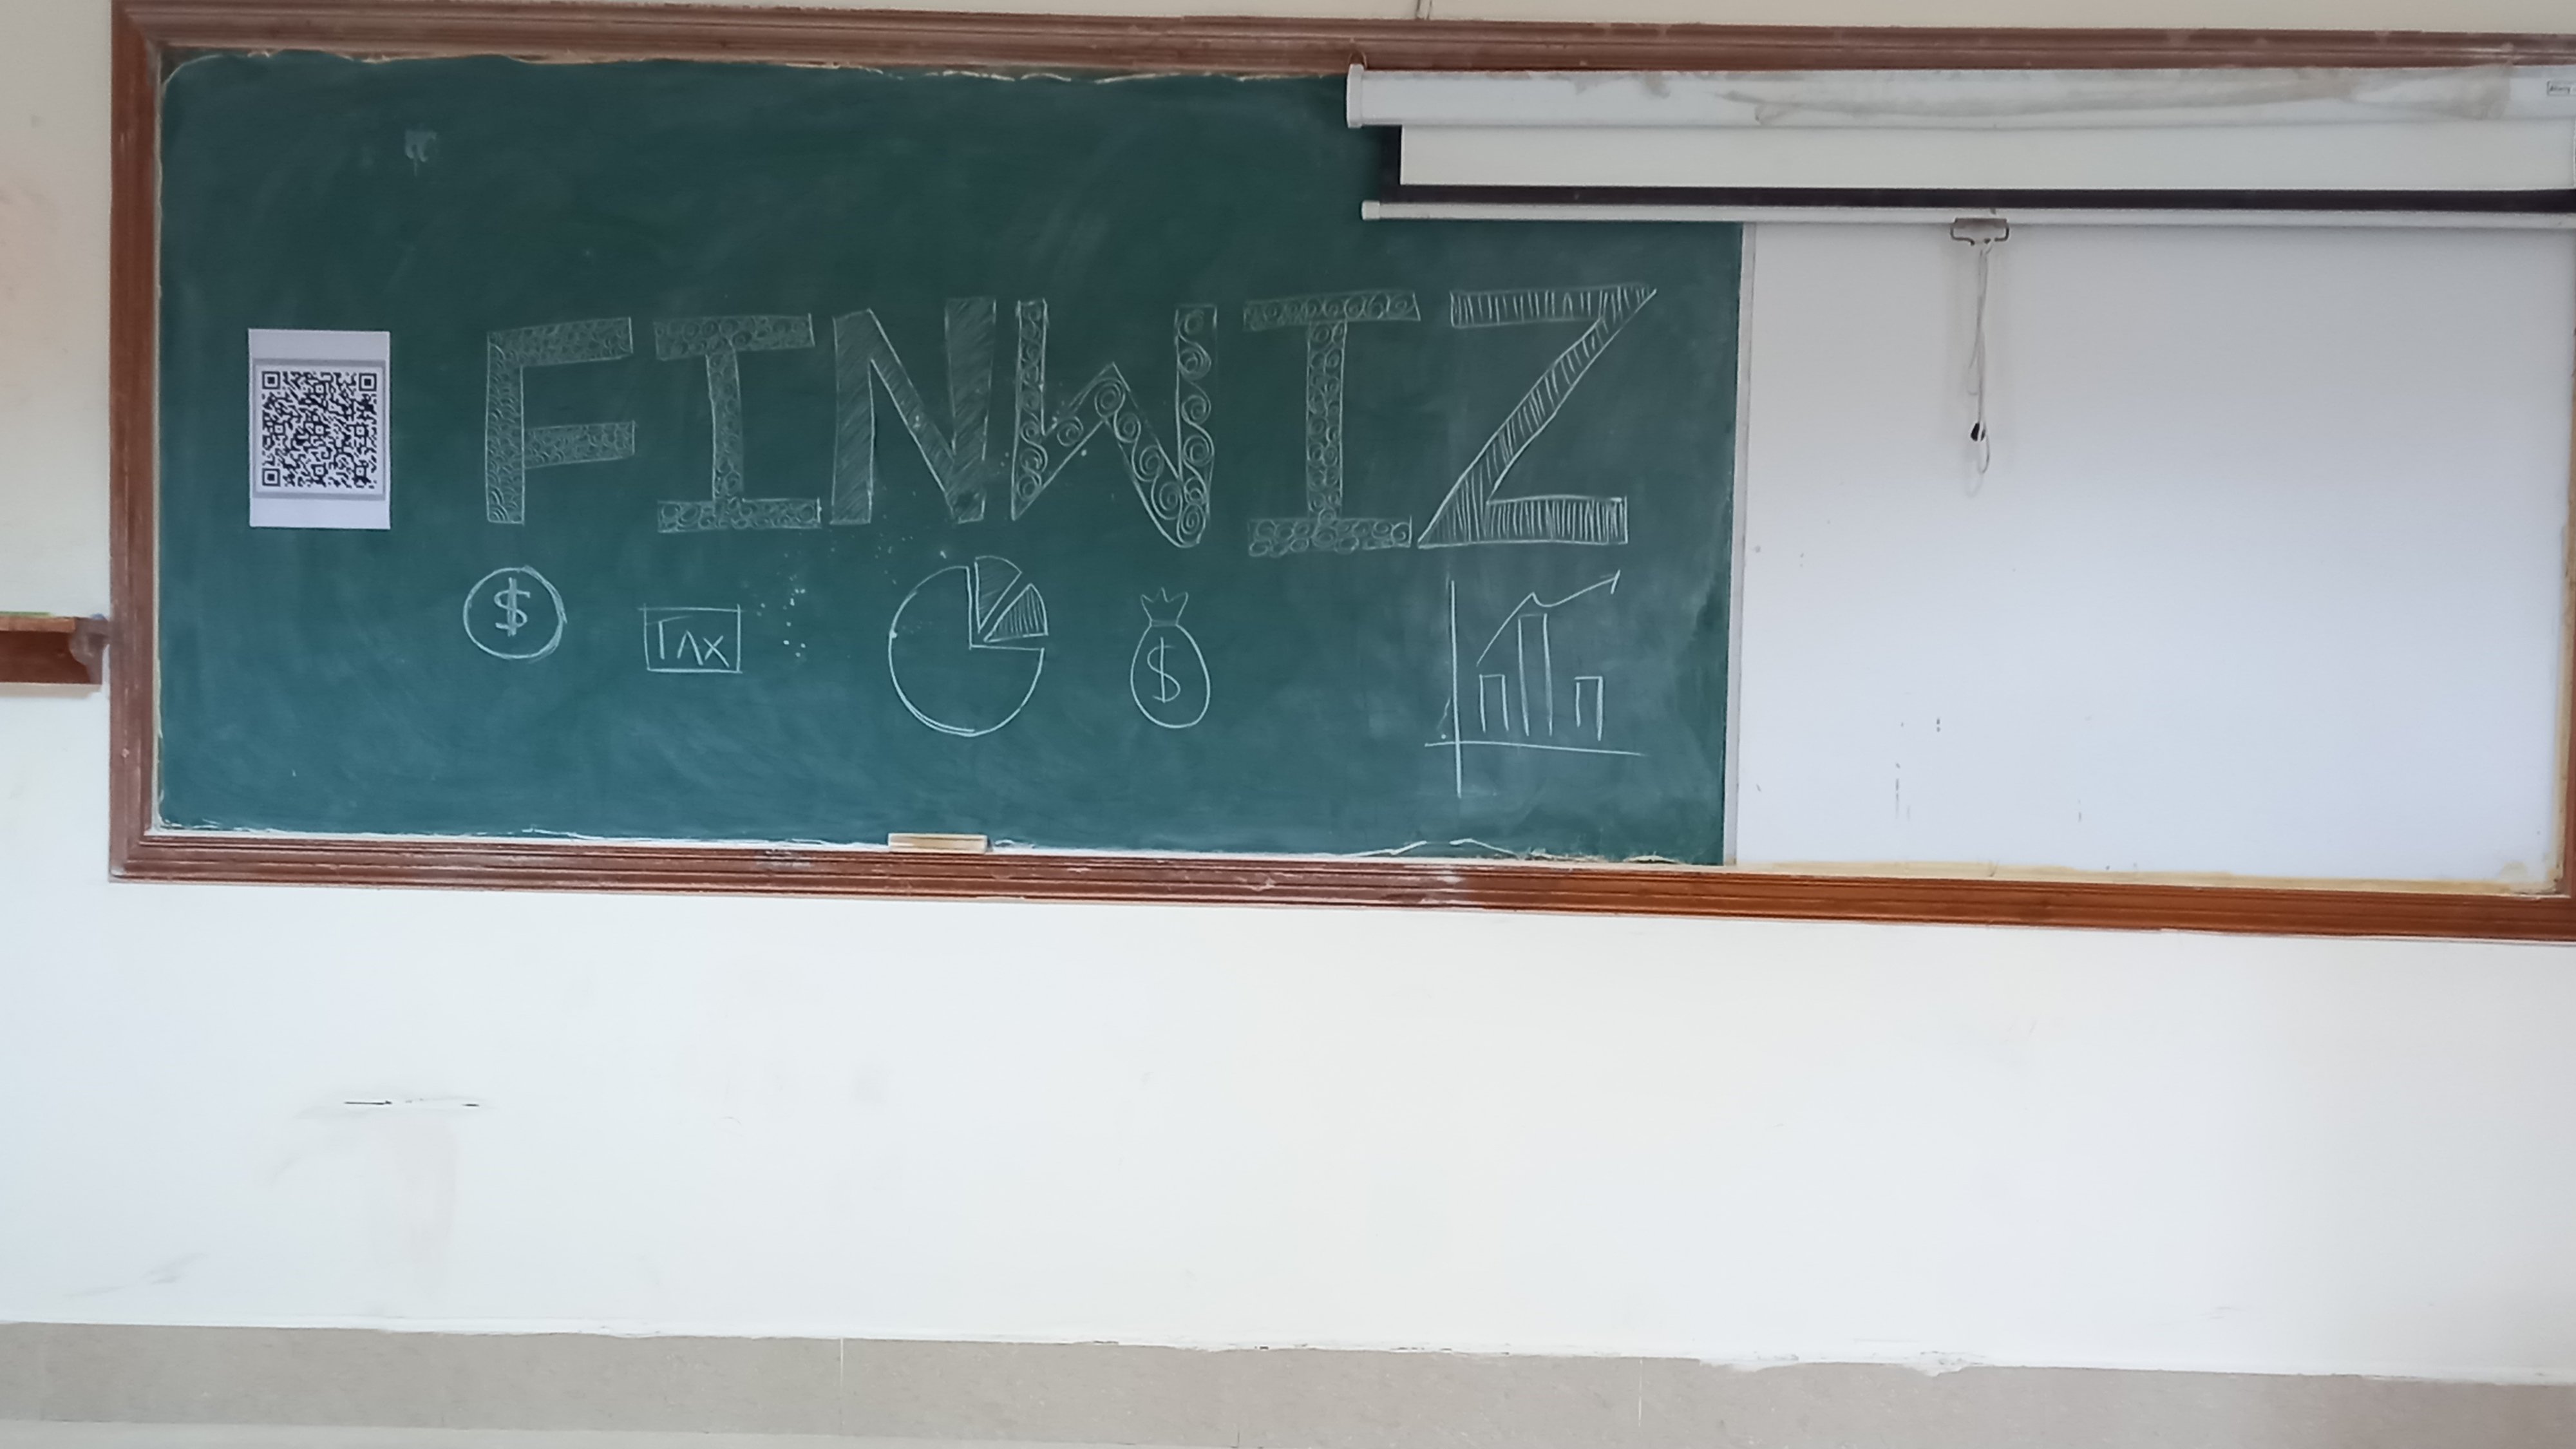 FINWIZ
$
TAX
$